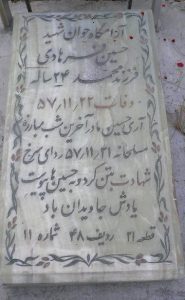 آرامگاه جوان شهید
حسین فرهادی
فرزند محمد ۲۴ ساله
وفات ۵۷,۱۱,۲۲
آری حسین در آخرین شب مبارزه
مسلحانه ۵۷,۱۱,۲۱ ردای سرخ
شهادت بتن کرد و به حسین ها پیوست
یادش جاویدان باد
قطعه ۲۱ ردیف ۴۸ شماره ۱۱